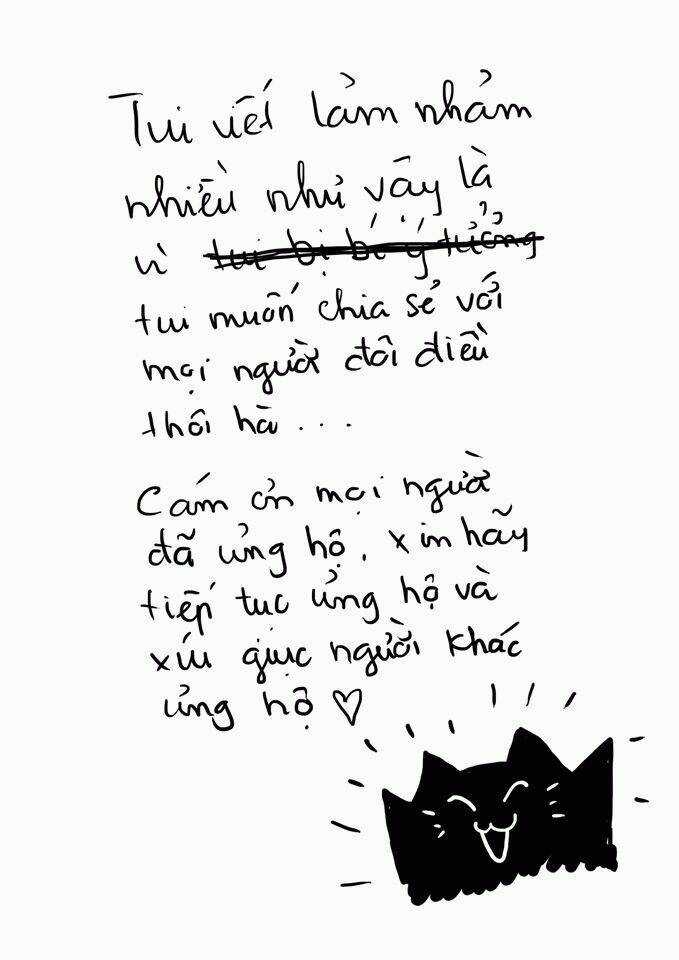 Tui viết lảm nhảm
nhiều như vầy là
vì tui bị bí ý tưởng
tui muốn chia sẻ với
mọi người đôi điều
thôi hà...
Cám ơn mọi người
đã ủng hộ, xin hãy
tiếp tục ủng hộ và
xúi giục người khác
ủng hộ ♡